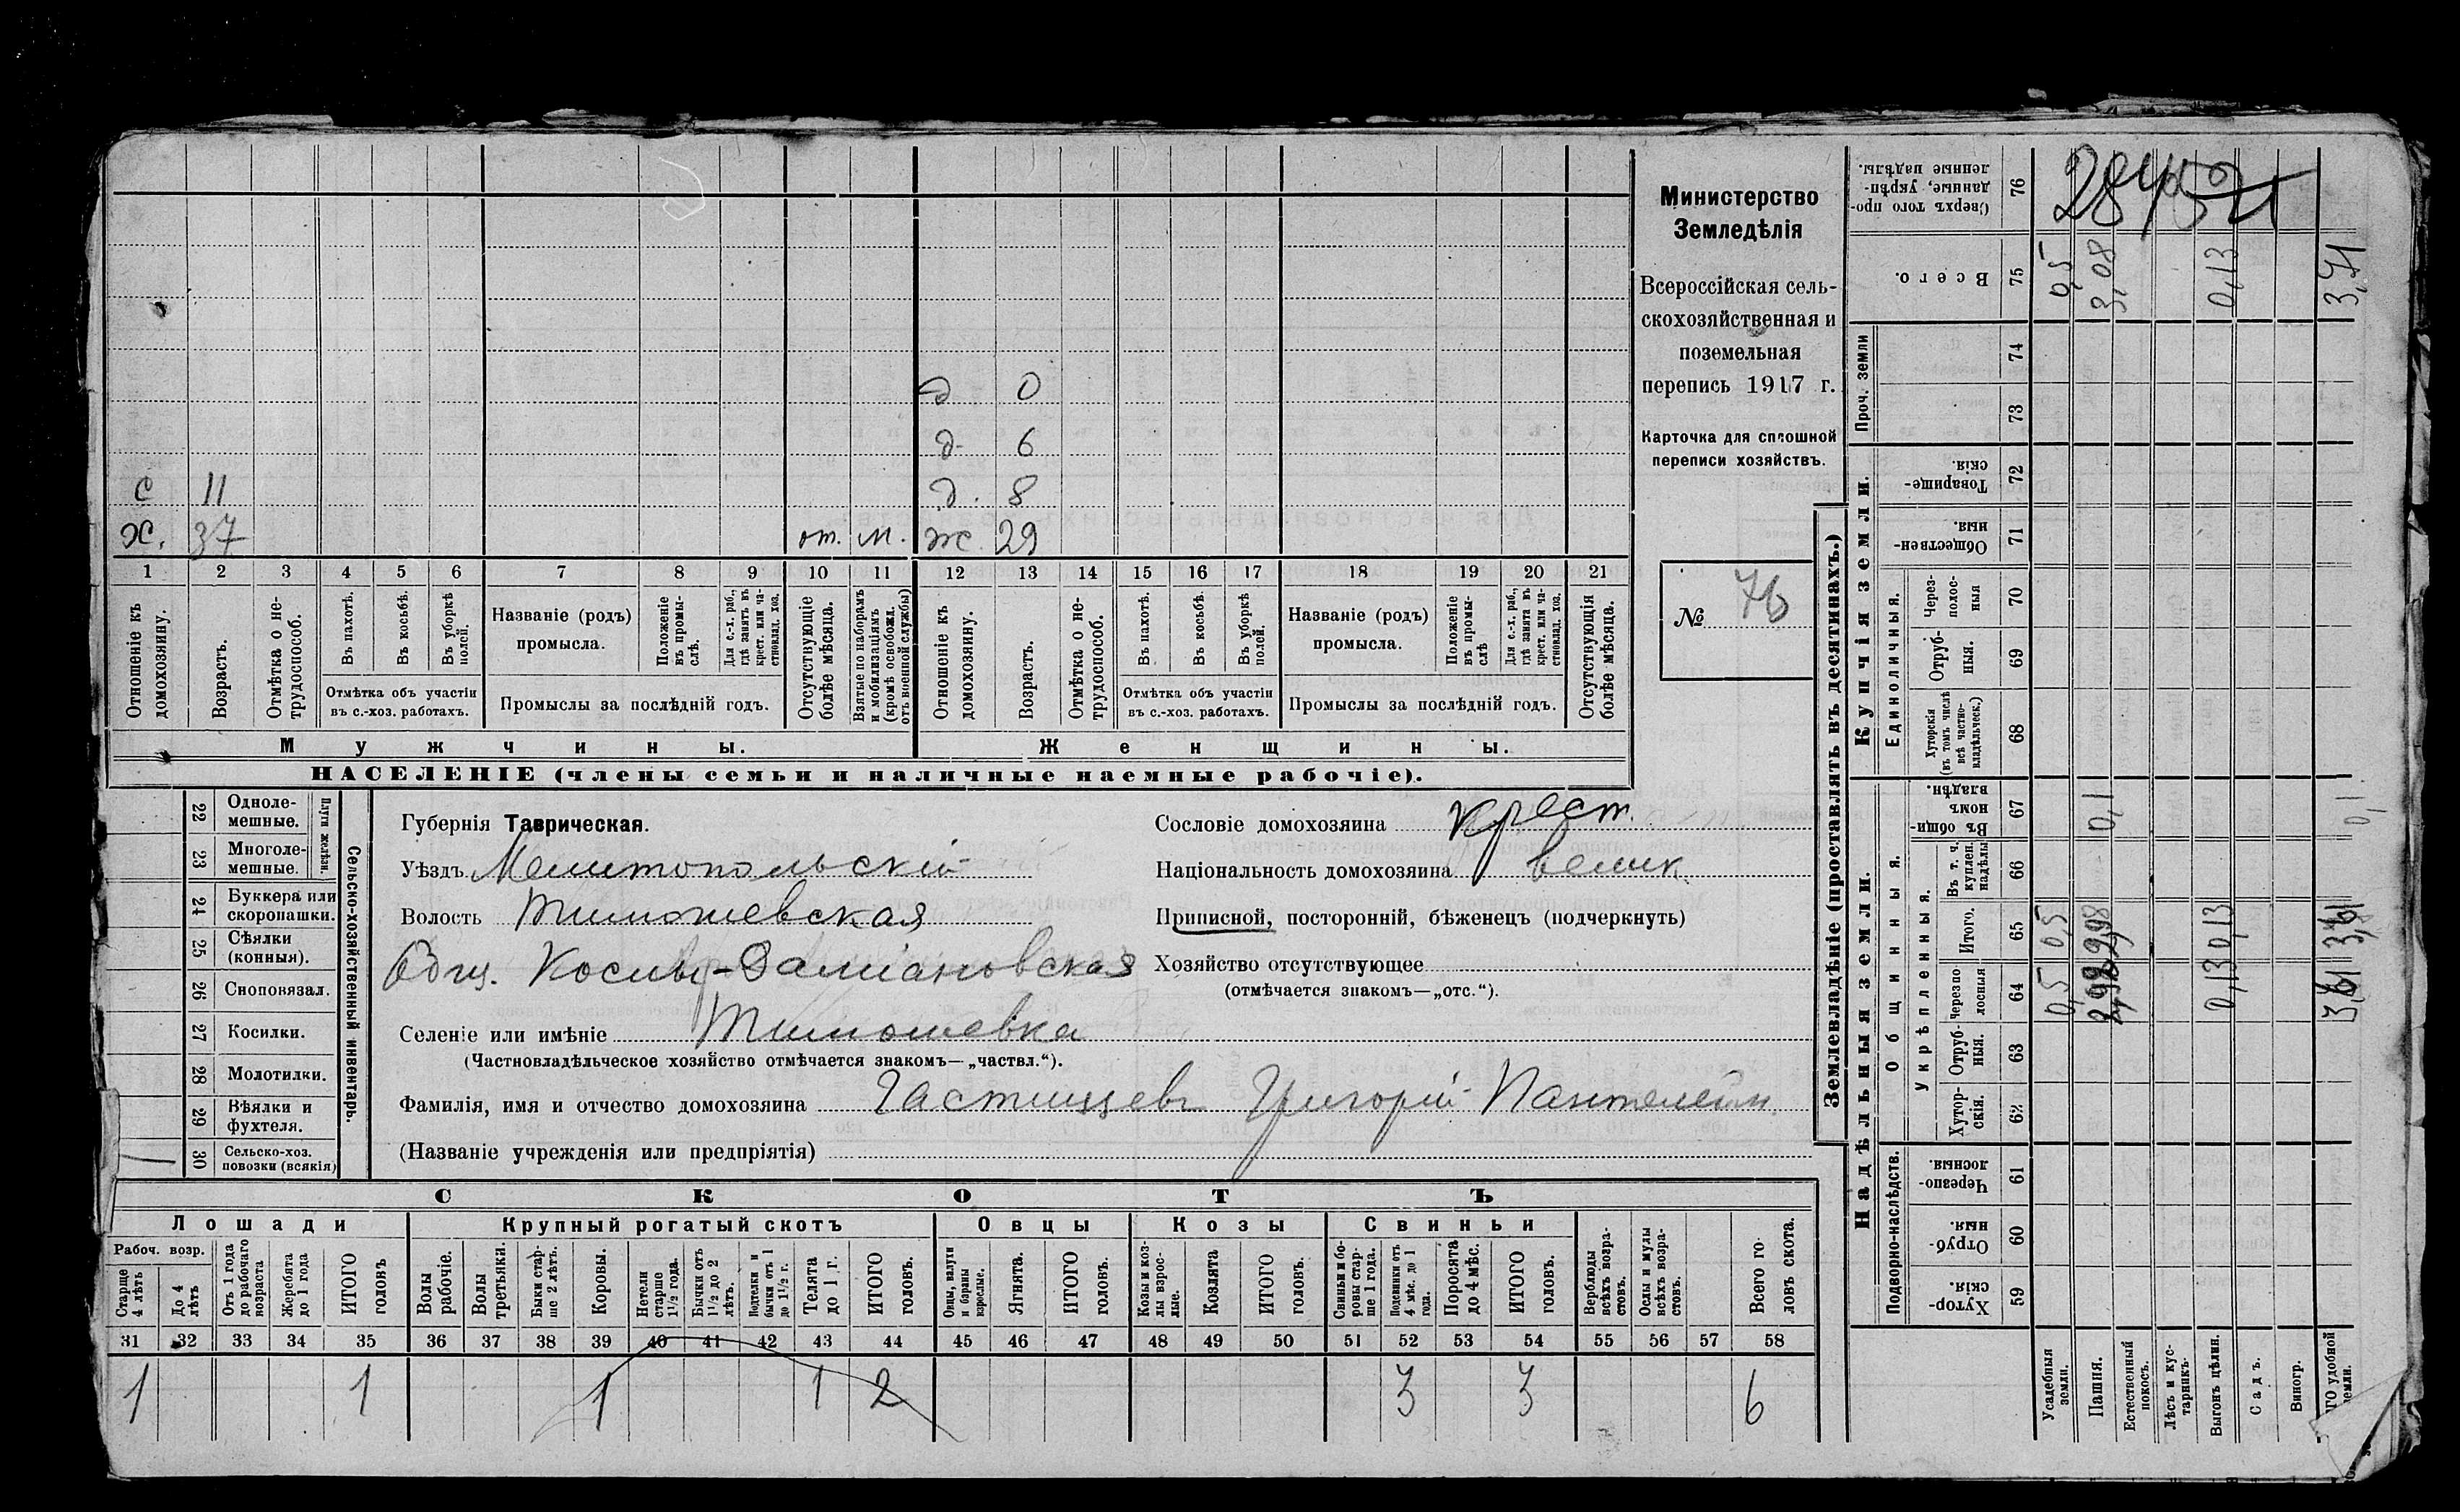 Министерство
Земледѣлія
Всероссійская сель-
скохозяйственная и
поземельная
перепись 1917 г.
Карточка для сплошной
переписи хозяйствъ.
№ 76
д 0
д. 6
с 11 д. 8
х. 37 от. м. ж. 29
1 2 3 4 5 6 7 8 9 10 11 12 13 14 15 16 17 18 19 20 21
Отношеніе къ домохозяину.
Возрастъ.
Отмѣтка о не-трудоспособ.
Въ пахотѣ.
Въ косьбѣ.
Въ уборкѣ полой.
Отмѣтка объ участіи
въ с.-хоз. работахъ.
Названіе (родъ)
промысла.
Положеніе въ промы-слѣ.
Для с.-х. раб., гдѣ занятъ въ крест. или ча-стновлад. хоз.
Промыслы за послѣдній годъ.
Отсутствующіе болѣе мѣсяца.
Взятые по наборамъ и мобилизаціямъ (кромѣ освобожд. отъ военной службы)
Отношеніе къ домохозяину.
Возрастъ.
Отмѣтка о не-трудоспособ.
Въ пахотѣ.
Въ косьбѣ.
Въ уборкѣ полой.
Отмѣтка объ участіи
въ с.-хоз. работахъ.
Названіе (родъ)
промысла.
Положеніе въ промы-слѣ
Для с.-х. раб., гдѣ занята въ крест. или ча-стновлад. хоз.
Промыслы за послѣдній годъ.
Отсутствующія болѣе мѣсяца.
Мужчины. Женщины.
НАСЕЛЕНІЕ (члены семьи и наличные наемные рабочіе).
22 Одноле-мешные.
23 Многоле-мешные.
Плуги желѣзн.
24 Буккера или скоропашки.
25 Сѣялки (конныя).
26 Сноповязал.
27 Косилки.
28 Молотилки.
29 Вѣялки и фухтеля.
30 Сельско-хоз. повозки (всякія)
Сельско-хозяйственный инвентарь.
Губернія Таврическая.
Уѣздъ Мелитопольскій
Волость Тимошевская
Общ. Косьмы-Даміановская
Селеніе или имѣніе Тимошевка
(Частновладѣльческое хозяйство отмѣчается знакомъ—„частвл.“).
Фамилія, имя и отчество домохозяина Частищевъ Григорій Пантелейм.
(Названіе учрежденія или предпріятія)
Сословіе домохозяина крест.
Національность домохозяина велик.
Приписной, посторонній, бѣженецъ (подчеркнуть)
Хозяйство отсутствующее
(отмѣчается знакомъ—„отс.“).
СКОТЪ
Лошади Крупный рогатый скотъ Овцы Козы Свиньи
Рабоч. возр.
Старше 4 лѣтъ
До 4 лѣтъ
Отъ 1 года до рабочаго возраста
Жеребята до 1 года
ИТОГО головъ
Волы рабочіе.
Волы третьяки.
Быки стар-ше 2 лѣтъ.
Коровы.
Нетели старше 1½ года.
Бычки отъ 1½ до 2 лѣтъ.
Подтелки и бычки отъ 1 до 1½ г.
Телята до 1 г.
ИТОГО головъ.
Овцы, валухи и бараны взрослые.
Ягнята.
ИТОГО головъ.
Козы и коз-лы взрос-лые.
Козлята
ИТОГО головъ.
Свиньи и бо-ровы стар-ше 1 года.
Подсвинки отъ 4 мѣс. до 1 года.
Поросята до 4 мѣс.
ИТОГО головъ.
Верблюды всѣхъ возра-стовъ.
Ослы и мулы всѣхъ возра-стовъ.
Всего го-ловъ скота.
31 32 33 34 35 36 37 38 39 40 41 42 43 44 45 46 47 48 49 50 51 52 53 54 55 56 57 58
1 1 1 1 2 3 3 6
Землевладѣніе (проставлять въ десятинахъ.)
Сверхъ того про-данные, укрѣп-ленные надѣлы. 76
Всего. 75 0,5 3,08 0,13 3,71
Проч. земли 74
73
Купчія земли.
Товарище-скія. 72
Обществен-ныя. 71
Единоличныя.
Через-полос-ныя 70
Отруб-ныя. 69
Хуторскія (въ томъ числѣ всѣ частно-владѣльческ.) 68
Надѣльныя земли.
Общинныя.
Въ общин-номъ владѣн. 67 0,1 0,1
Укрѣпленныя.
Въ т. ч. куплен. надѣлы 66
Итого. 65 0,5 2,98 0,13 3,61
Черезпо-лосныя 64 0,5 2,98 0,13 3,61
Отруб-ныя. 63
Хутор-скія. 62
Подворно-наслѣдств.
Черезпо-лосныя. 61
Отруб-ныя. 60
Хутор-скія. 59
Усадебныя земли.
Пашня.
Естественный покосъ.
Лѣсъ и кус-тарникъ.
Выгонъ цѣлин.
Садъ.
Виногр.